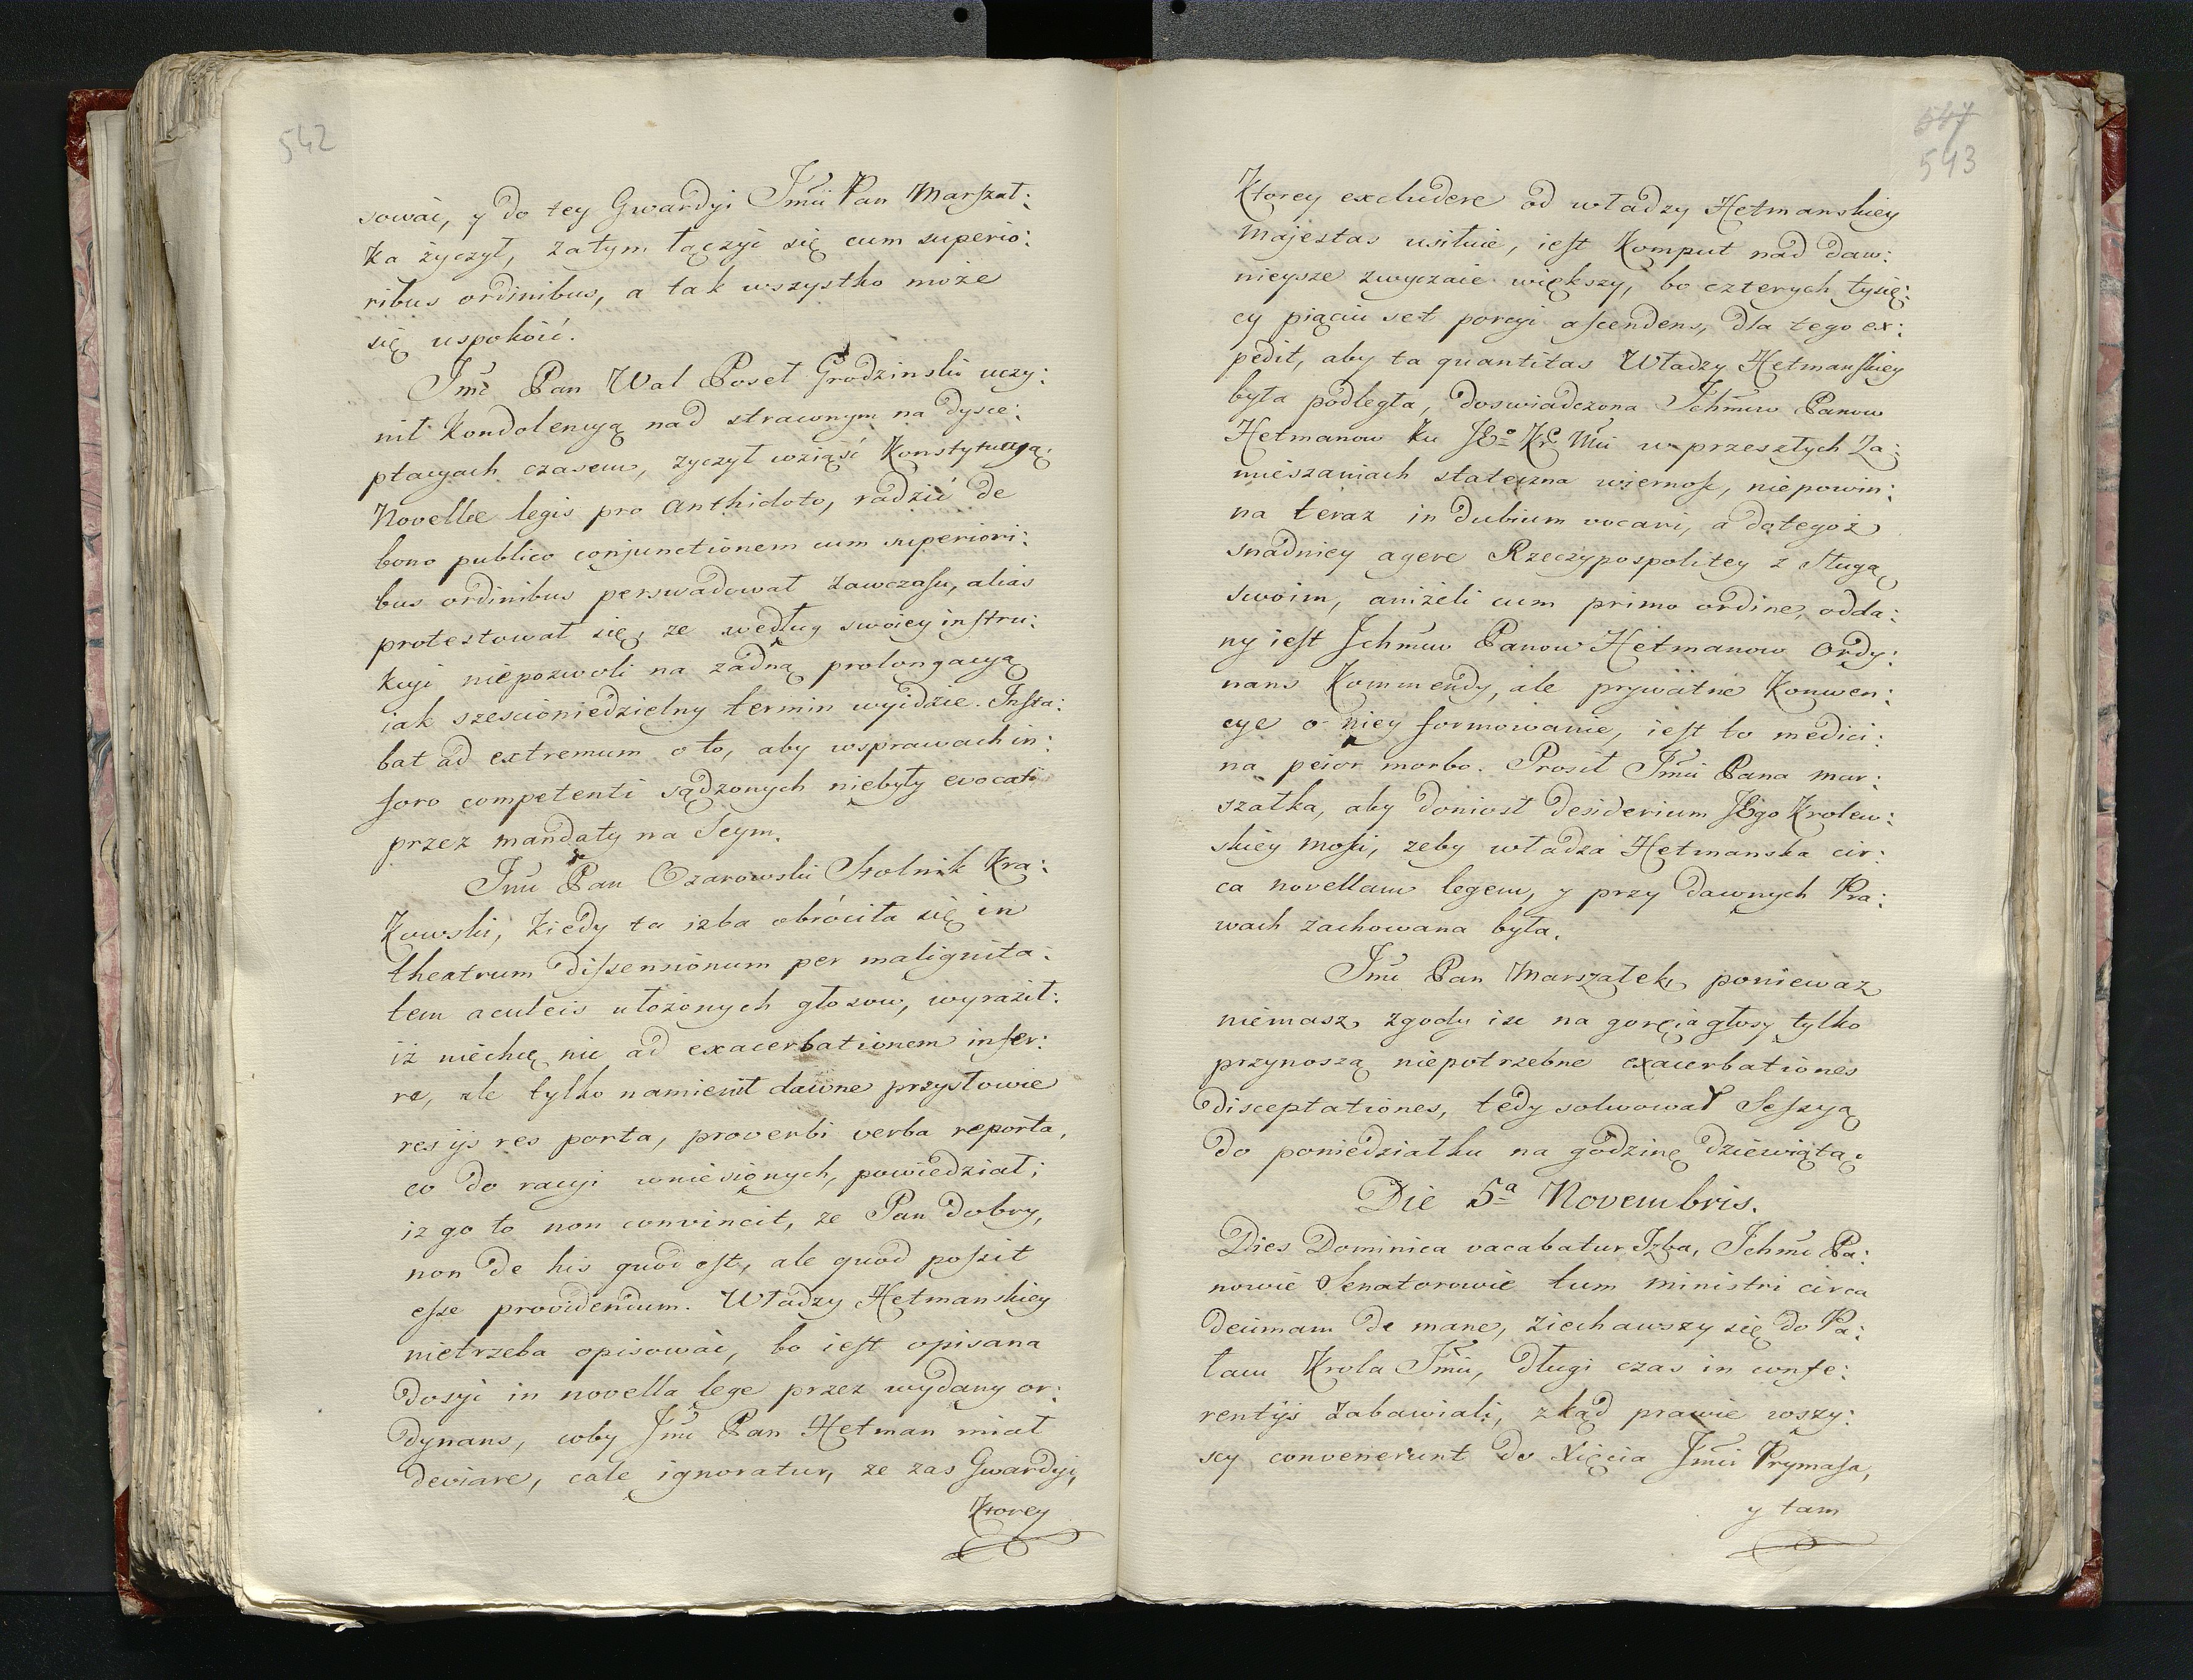 542
sowai, y do tey Gwardyi Jmći Pan Marszał:
ka życzył, zatym łączyć się cum superio:
ribus ordinibus, a tak wszystko może
się uspokoić.
Jmć Pan Wal Poseł Grodzinski uczy:
nił kondolencyą nad strawnym na dysce:
ptacyach czasem, zyczył wziąść Konstytucyą
Novellæ legis pro Anthidoto, radzić de
bono publico conjunctionem cum superiori:
bus ordinibus perswadował zawczasu, alias
protestował się, ze według swoiey instru:
kcyi niepozwoli na zadną prolongacyą
iak szescioniedzielny termin wyidzie. Insta:
bat ad extremum o to, aby wsprawach in:
foro competenti sądzonych niebyły evocati
przez mandaty na Seym.
Jmć Pan Ozarowski Stolnik Kra:
kowski, kiedy ta izba obróciła się in
theatrum dissensionum per malignita:
tem aculeis ułożonych głosow, wyraził:
iż niechcę nic ad exacerbationem infer:
re, ale tylko namienił dawne przysłowie
res ijs res porta, proverbi verba reporta,
co do racyi wniesionych, powiedział;
iz go to non convincit, ze Pan dobry,
non de his quod est, ale quod possit
esse providendum. Władzy Hetmanskiey
nietrzeba opisowai, bo iest opisana
dosyi in novella lege przez wydany or:
dynans, coby Jmć Pan Hetman miał
deviare, cale ignoratur, ze zas Gwardyi,
Ktorey
547
543
Ktorey excludere od władzy Hetmanskiey
Majestas usiłuie, iest Komput nad daw:
nieysze zwyczaie większy, bo czterych tysię:
cy piąciu set porcyi ascendens, dla tego ex:
pedit, aby ta quantitas Władzy Hetmanskiey
była podległa, doswiadczona Ichmciow Panow
Hetmanow ku JEo Kr Mci w przeszłych Za:
mieszaniach stateczna wiernosc, niepowin:
na teraz in dubium vocari, a dotegoż
snadniey agere Rzeczypospolitey z Sługą
swoim, aniżeli cum primo ordine, odda:
ny iest Ichmciow Panow Hetmanow Ordy:
nans Kommendy, ale prywatne Konwen:
cye o niey formowanie, iest to medici:
na peior morbo. Prosił Jmci Pana mar:
szałka, aby doniosł desiderium JEgo Krolew:
skiey Mosci, zeby władza Hetmanska cir:
ca novellam legem, y przy dawnych Pra:
wach zachowana była.
Jmć Pan Marszałek, poniewaz
niemasz zgody ize na goręcia głosy tylko
przynoszą niepotrzebne exacerbationes
disceptationes, tedy solwował Sessyą
do poniedziałku na godzinę dziewiątą.
Die 5ª Novembris.
Dies Dominica vacabatur Izba, Ichmć Pa:
nowie Senatorowie tum ministri circa
decimam de mane, ziechawszy się do Pa:
łacu Krola Jmci, długi czas in confe:
rentijs zabawiali, zkąd prawie wszy:
scy convenerunt do Xięcia Jmci Prymasa,
y tam